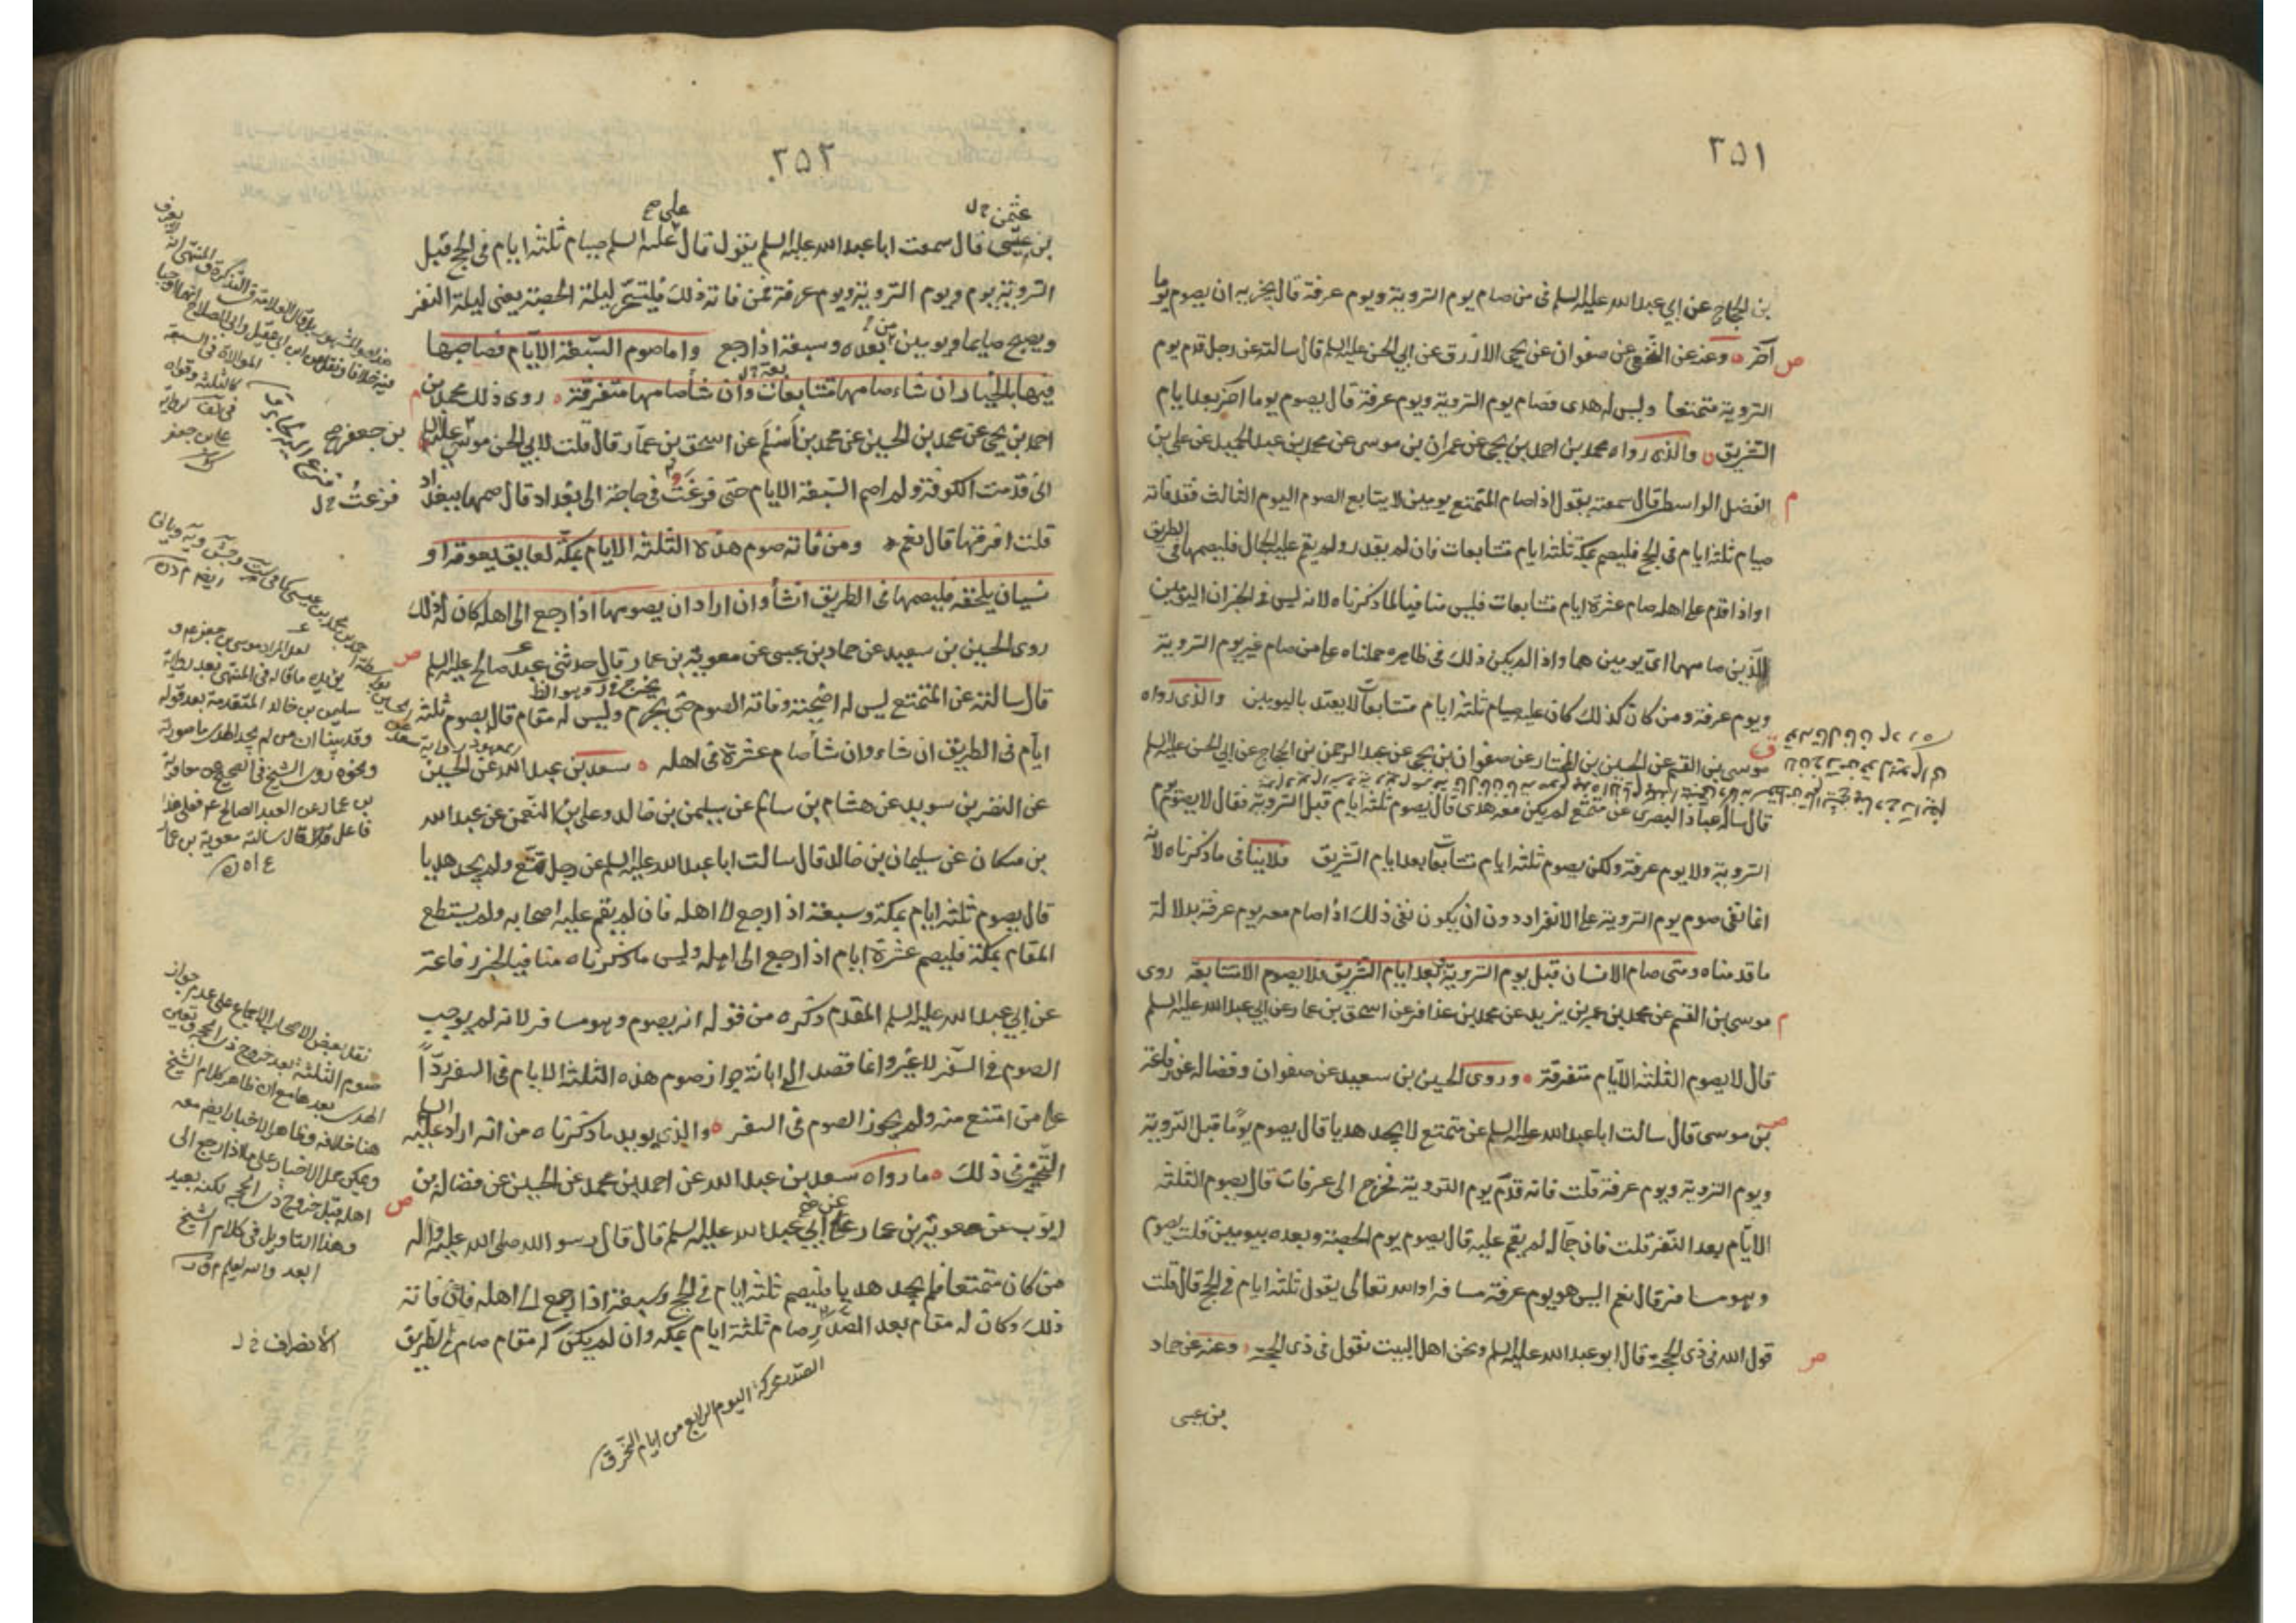 ٢٥١
بن الحجاج عن ابي عبدالله عليه السلم في من صام يوم التروية ويوم عرفة قال يجزيه ان يصوم يوما
آخر وعنه عن النخعي عن صفوان عن يحيى الازرق عن ابي الحسن عليه السلم قال سالته عن رجل قدم يوم
ص
التروية متمتعا وليس له هدى فصام يوم التروية ويوم عرفة قال يصوم يوما آخر بعد ايام
التشريق والذي رواه محمد بن احمد بن يحيى عن عمران بن موسى عن محمد بن عبد الحميد عن على بن
الفضل الواسطى قال سمعته يقول اذا صام المتمتع يومين لا يتابع الصوم اليوم الثالث فقد فاته
م
صيام ثلثه ايام في الحج فليصم بمكة ثلثه ايام متتابعات فان لم يقدر ولم يقم عليه الجمال فليصمها في الطريق
او اذا قدم على اهله صام عشرة ايام متتابعات فليس منافيا لما ذكرناه لانه ليس في الخبر ان اليومين
اللذين صامهما اى يومين هما واذا لم يكن ذلك في ظاهره حملناه على من صام غير يوم التروية
ويوم عرفة ومن كان كذلك كان عليه صيام ثلثه ايام متتابعات لا يعتد باليومين والذي رواه
موسى بن القسم عن الحسين بن المختار عن صفوان بن يحيى عن عبد الرحمن بن الحجاج عن ابي الحسن عليه السلم
قال ساله عباد البصرى عن متمتع لم يكن معه هدى قال يصوم ثلثه ايام قبل التروية فقال لا يصوم يوم
التروية ولا يوم عرفة ولكن يصوم ثلثه ايام متتابعات بعد ايام التشريق فلا ينافى ما ذكرناه لانه
انما نفى صوم يوم التروية على الانفراد دون ان يكون نفى ذلك اذا صام معه يوم عرفة بدلالة
ما قدمناه ومتى صام الانسان قبل يوم التروية بعد ايام التشريق فلا يصوم الا متتابعة روى
موسى بن القسم عن محمد بن عمر بن يزيد عن محمد بن عذافر عن اسحق بن عمار عن ابي عبدالله عليه السلم
م
قال لا يصوم الثلثه الايام متفرقة وروى الحسين بن سعيد عن صفوان وفضاله عن رفاعة
بن موسى قال سالت ابا عبدالله عليه السلم عن متمتع لا يجد هديا قال يصوم يوما قبل التروية
ص
ويوم التروية ويوم عرفة قلت فانه قدم يوم التروية فخرج الى عرفات قال يصوم الثلثه
الايام بعد النفر قلت فان جماله لم يقم عليه قال يصوم يوم الحصبة وبعده بيومين قلت يصوم
وهو مسافر قال نعم اليس هو يوم عرفة مسافرا والله تعالى يقول ثلثه ايام في الحج قال قلت
قول الله في ذى الحجة قال ابو عبدالله عليه السلم ونحن اهل البيت نقول في ذى الحجة وعنه عن حماد
ص
بن عيسى
٢٥٢
بن عيسى قال سمعت ابا عبدالله عليه السلم يقول قال على عليه السلم صيام ثلثه ايام في الحج قبل
التروية بيوم ويوم التروية ويوم عرفة فمن فاته ذلك فليتسحر ليلة الحصبة يعنى ليلة النفر
ويصبح صايما ويومين بعده وسبعة اذا رجع واما صوم السبعة الايام فصاحبها
فيها بالخيار ان شاء صامها متتابعات وان شاء صامها متفرقة روى ذلك محمد بن
احمد بن يحيى عن محمد بن الحسين عن محمد بن اسلم عن اسحق بن عمار قال قلت لابي الحسن موسى عليه السلم
انى قدمت الكوفة ولم اصم السبعة الايام حتى فزعت في حاجة الى بغداد قال صمها ببغداد
قلت افرقها قال نعم ومن فاته صوم هذه الثلثه الايام بمكة لعايق يعوقه او
نسيان يلحقه فليصمها في الطريق ان شاء وان اراد ان يصومها اذا رجع الى اهله كان له ذلك
روى الحسين بن سعيد عن حماد بن عيسى عن معوية بن عمار قال حدثنى عبد صالح عليه السلم
ص
قال سالته عن المتمتع ليس له اضحية وفاته الصوم حتى يخرج وليس له مقام قال يصوم ثلثه
ايام في الطريق ان شاء وان شاء صام عشرة في اهله سعد بن عبدالله عن الحسين
عن النضر بن سويد عن هشام بن سالم عن سليمن بن خالد وعلى بن النعمن عن عبدالله
بن مسكان عن سليمان بن خالد قال سالت ابا عبدالله عليه السلم عن رجل تمتع ولم يجد هديا
قال يصوم ثلثه ايام بمكة وسبعة اذا رجع الى اهله فان لم يقم عليه اصحابه ولم يستطع
المقام بمكة فليصم عشرة ايام اذا رجع الى اهله وليس ما ذكرناه منافيا لخبر رفاعة
عن ابي عبدالله عليه السلم المقدم ذكره من قوله انه يصوم وهو مسافر لانه لم يوجب
الصوم في السفر لا غير وانما قصد الى ابانة جواز صوم هذه الثلثه الايام في السفر ردا
على من امتنع منه ولم يجوز الصوم في السفر والذي يويد ما ذكرناه من انه اراد عليه السلم
التخيير في ذلك ما رواه سعد بن عبدالله عن احمد بن محمد عن الحسين عن فضاله بن
ايوب عن معوية بن عمار عن ابي عبدالله عليه السلم قال قال رسول الله صلى الله عليه واله
ص
من كان متمتعا فلم يجد هديا فليصم ثلثه ايام في الحج وسبعة اذا رجع الى اهله فان فاته
ذلك وكان له مقام بعد الصدر صام ثلثة ايام بمكه وان لم يكن له مقام صام في الطريق
الصدر محركة اليوم الرابع من ايام النحر ق
بن جعفر صح
فزعت خ ل
لعل المراد موسى بن جعفر ع م و
يؤيده ما قاله في المنتهى بعد رواية
سليمن بن خالد المتقدمة بعد قوله
وقد بينا ان من لم يجد الهدى ما صورته
ونحوه روى الشيخ في الصحيح عن معوية
بن عمار عن العبد الصالح ع م فعلى هذا
فاعل قال قال سالته معوية بن عمار
نقل بعض الاصحاب الاجماع على عدم جواز
صوم الثلثة بعد خروج ذى الحجة وتعين
الهدى بعدها مع ان ظاهر كلام الشيخ
هنا خلافه وظاهر الاخبار ايضا معه
ويمكن حمل الاخبار على ما اذا رجع الى
اهله قبل خروج ذى الحجة لكنه بعيد
وهذا التاويل في كلام الشيخ
ابعد والله يعلم
الانصراف خ ل